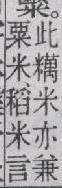 此糲米亦兼
粟米稻米言